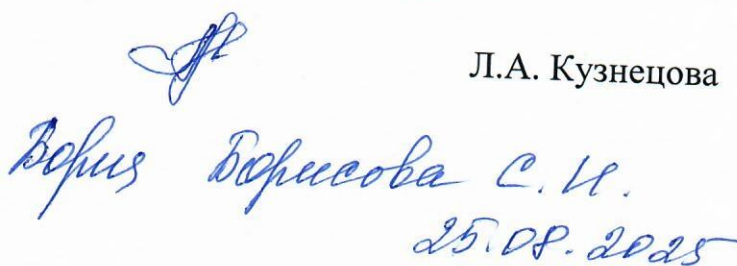 Л.А. Кузнецова
Борисова С. И.
25.08.2025